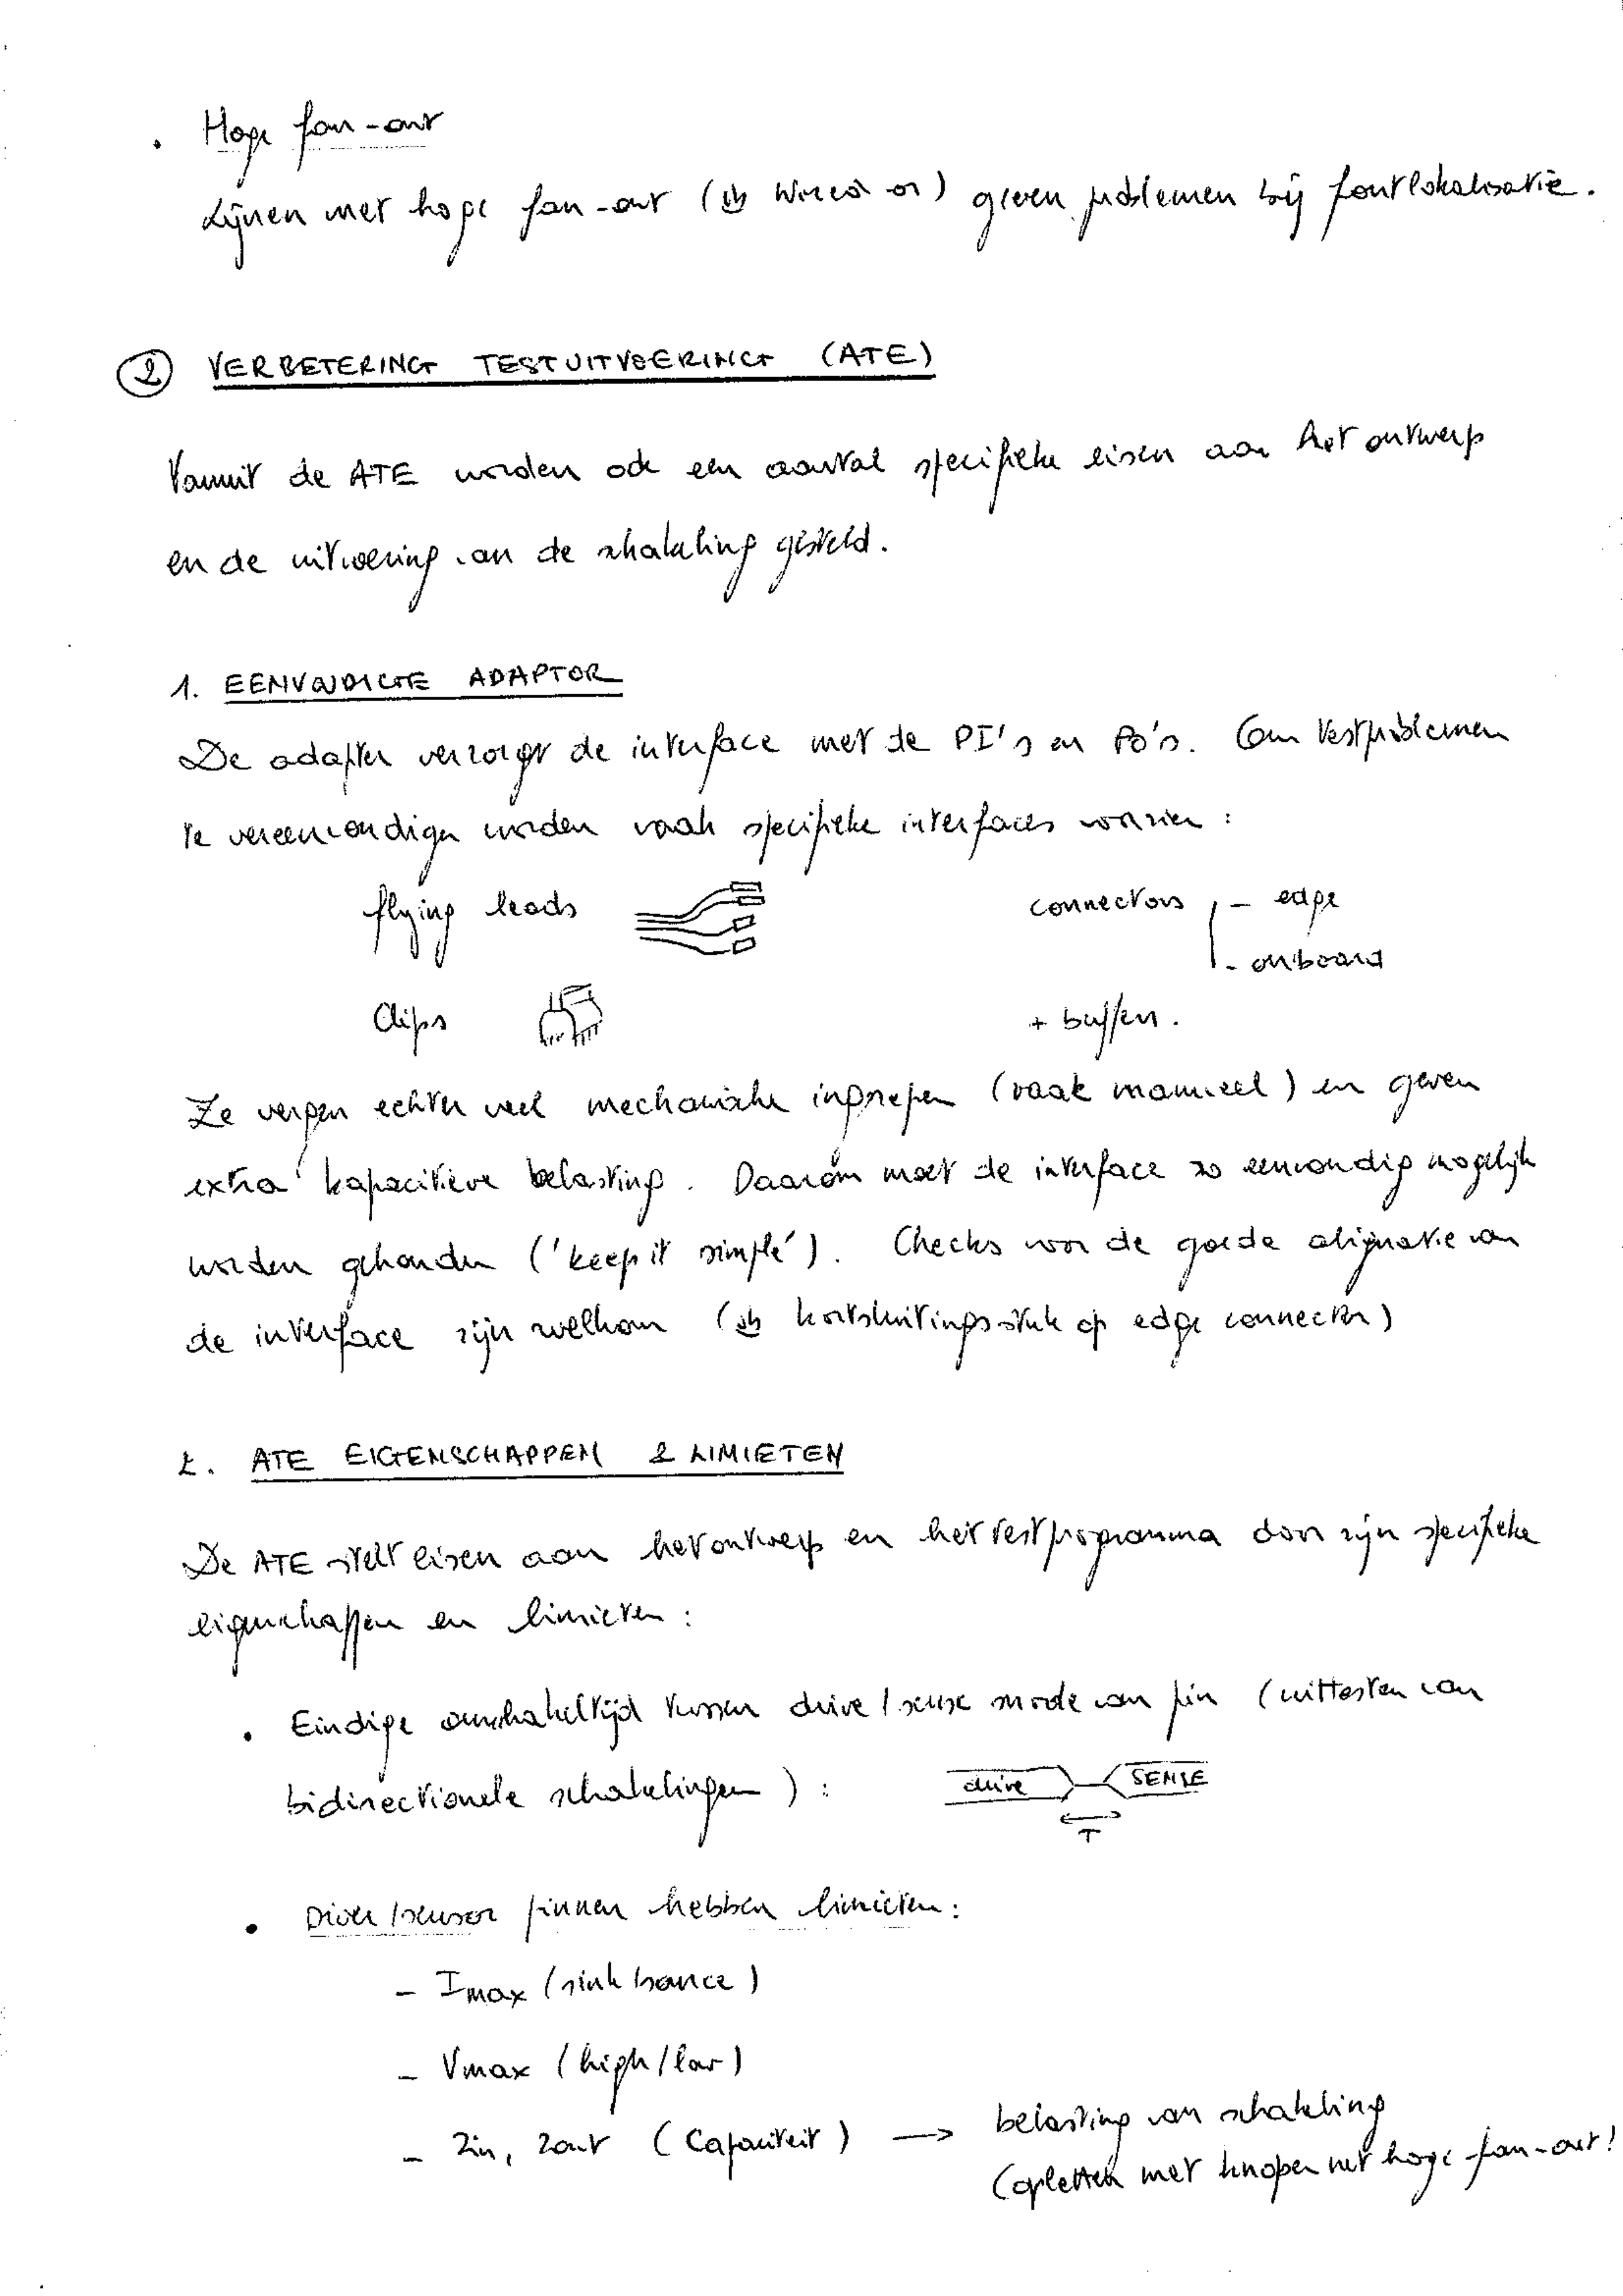 • Hoge fan-out
Lijnen met hoge fan-out (vb wired or) geven problemen bij foutlokalisatie.
② VERBETERING TESTUITVOERING (ATE)
Vanuit de ATE worden ook een aantal specifieke eisen aan het ontwerp
en de uitvoering van de schakeling gesteld.
1. EENVOUDIGE ADAPTOR
De adapter verzorgt de interface met de PI's en PO's. Om testproblemen
te vereenvoudigen worden vaak specifieke interfaces voorzien :
flying leads connectors - edge
- onboard
Clips + buffers.
Ze vergen echter veel mechanische ingrepen (vaak manueel) en geven
extra kapacitieve belasting. Daarom moet de interface zo eenvoudig mogelijk
worden gehouden ('keep it simple'). Checks voor de goede alignatie van
de interface zijn welkom (vb kortsluitingsstuk op edge connector)
2. ATE EIGENSCHAPPEN & LIMIETEN
De ATE stelt eisen aan het ontwerp en het testprogramma door zijn specifieke
eigenschappen en limieten :
• Eindige omschakeltijd tussen drive/sense mode van pin (uittesten van
bidirectionele schakelingen) : drive SENSE
T
• Driver/sensor pinnen hebben limieten :
- Imax (sink/source)
- Vmax (high/low)
- Zin, Zout (Capaciteit) → belasting van schakeling
(opletten met knopen met hoge fan-out!